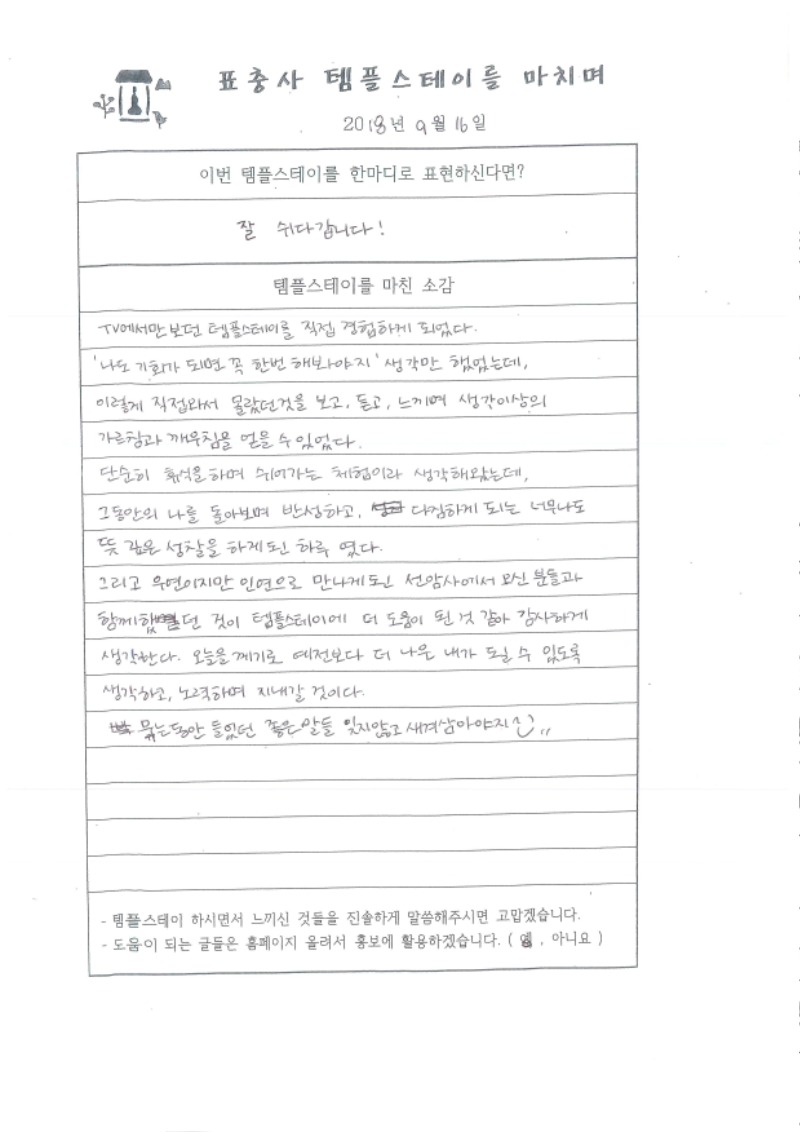 표충사 템플스테이를 마치며
2018년 9월 16일
이번 템플스테이를 한마디로 표현하신다면?
잘 쉬다갑니다!
템플스테이를 마친 소감
TV에서만 보던 템플스테이를 직접 경험하게 되었다.
'나도 기회가 되면 꼭 한번 해봐야지' 생각만 했었는데,
이렇게 직접와서 몰랐던것을 보고, 듣고, 느끼며 생각이상의
가르침과 깨우침을 얻을 수 있었다.
단순히 휴식을 하며 쉬어가는 체험이라 생각해왔는데,
그동안의 나를 돌아보며 반성하고, 다짐하게 되는 너무나도
뜻 깊은 성찰을 하게된 하루 였다.
그리고 우연이지만 인연으로 만나게된 선암사에서 오신 분들과
함께했던 것이 템플스테이에 더 도움이 된 것 같아 감사하게
생각한다. 오늘을 계기로 예전보다 더 나은 내가 될 수 있도록
생각하고, 노력하며 지내갈 것이다.
묵는동안 들었던 좋은말들 잊지않고 새겨삼아야지
- 템플스테이 하시면서 느끼신 것들을 진솔하게 말씀해주시면 고맙겠습니다.
- 도움이 되는 글들은 홈페이지 올려서 홍보에 활용하겠습니다. ( 예 , 아니요 )